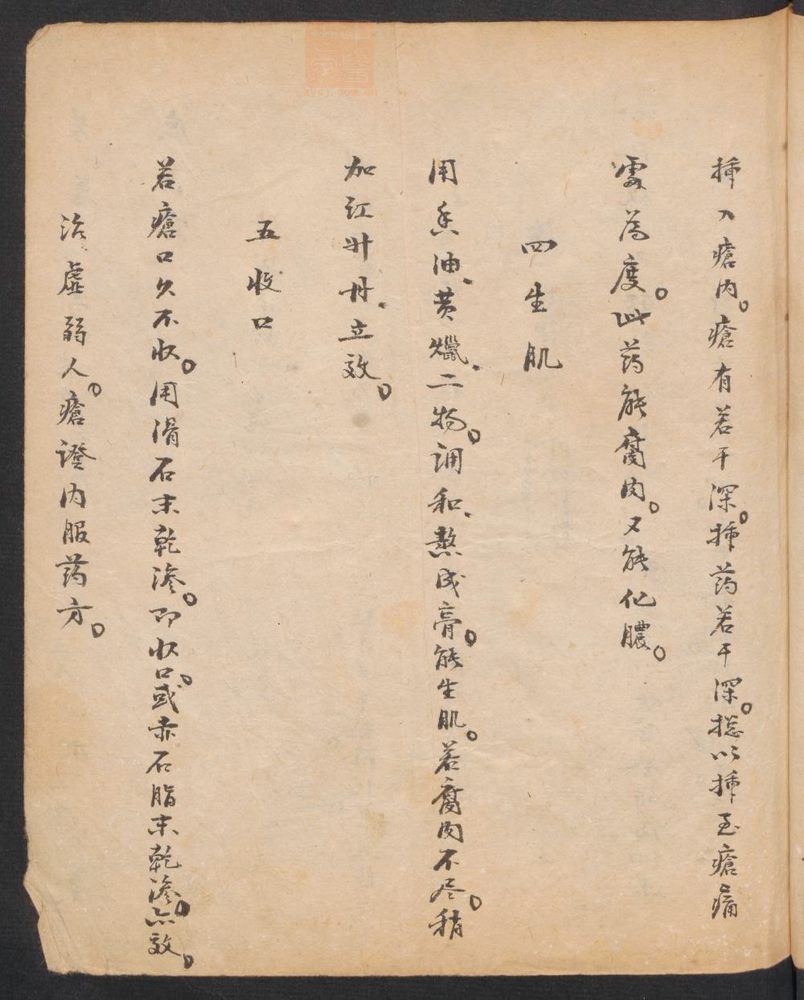 插入瘡内。瘡有若干深。插药若干深。揔以插至瘡痛
處為度。此药能腐肉。又能化膿。
四生肌
用香油、黄蠟、二物。調和、熬成膏。能生肌。若腐肉不尽。稍
加红升丹、立效。
五收口
若瘡口久不收。用滑石末乾滲。即收口。或赤石脂末乾滲。亦效。
治虚弱人。瘡證内服药方。